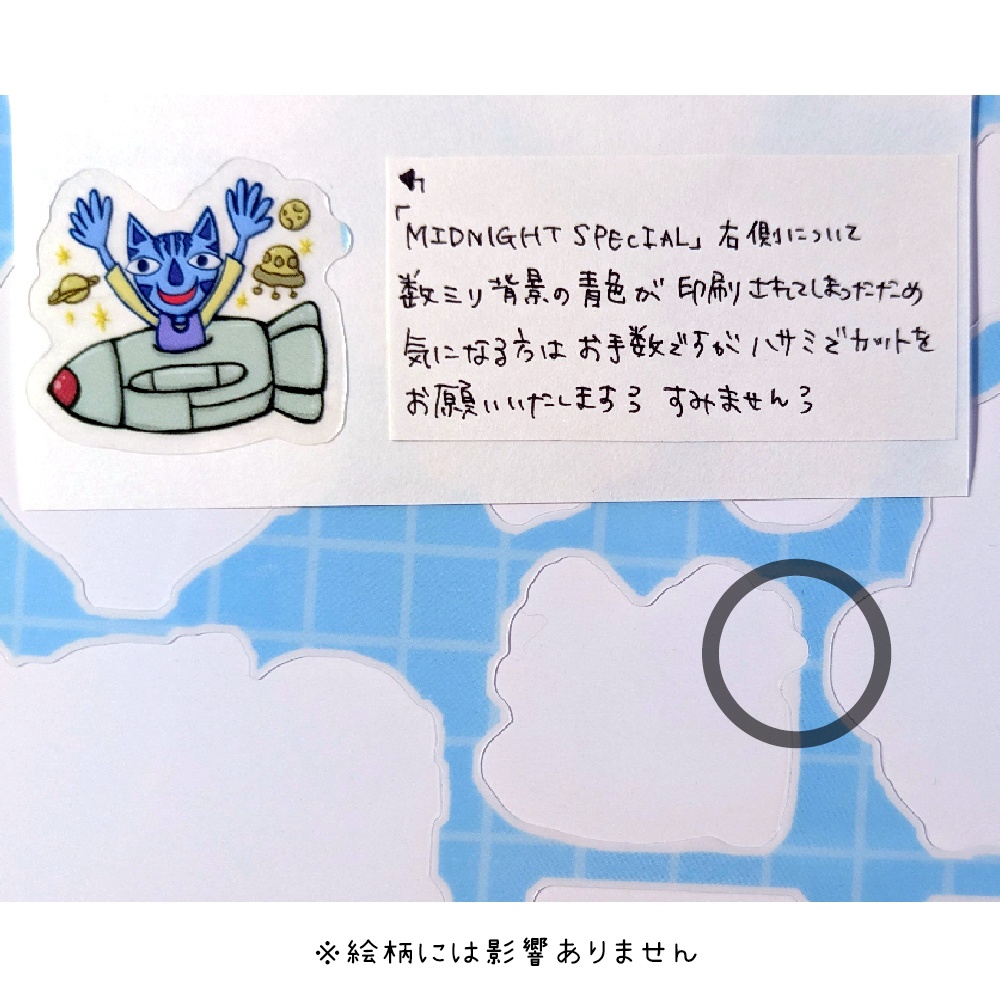 「MIDNIGHT SPECIAL」右側について
数ミリ背景の青色が印刷されてしまったため
気になる方はお手数ですがハサミでカットを
お願いいたします〻 すみません〻
※絵柄には影響ありません